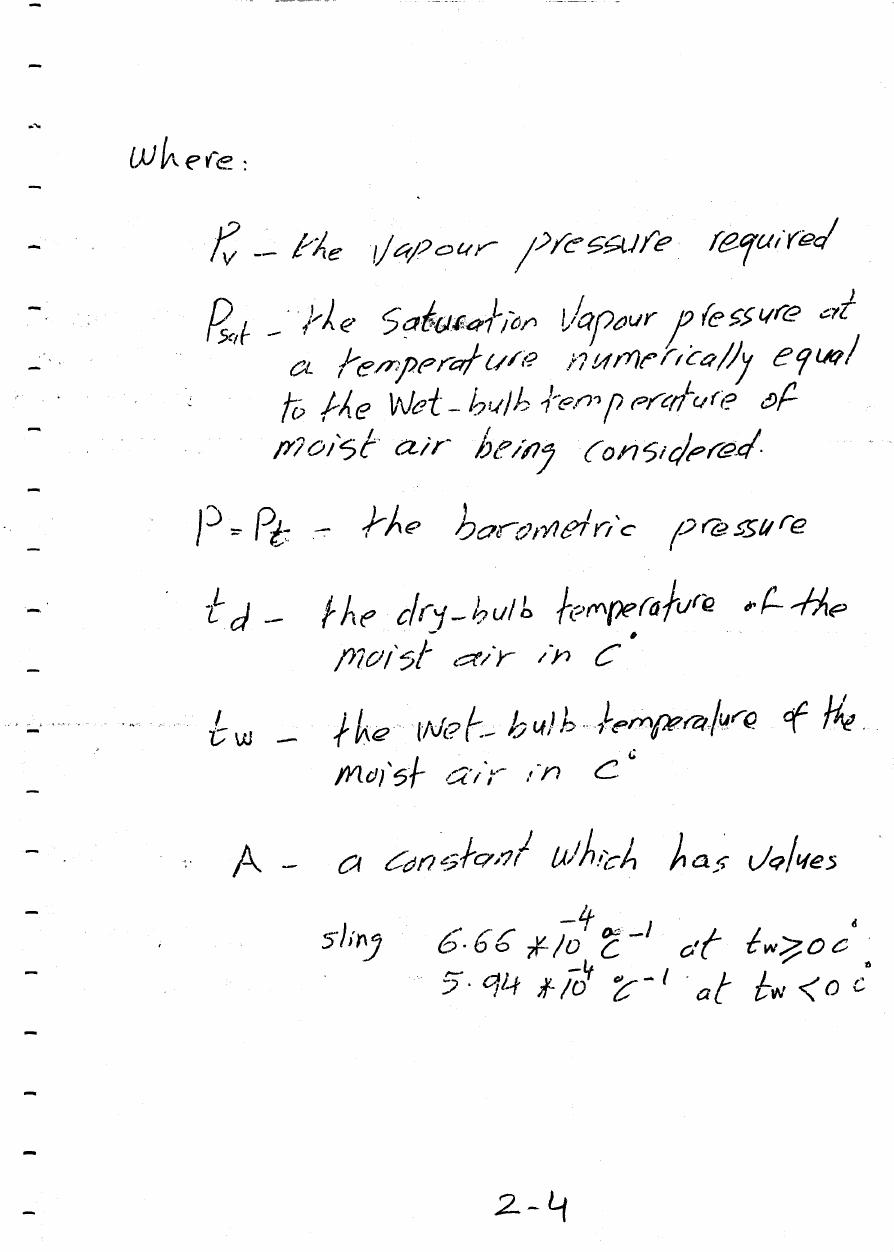 Where:
Pv – the Vapour pressure required
Psat – the Saturation Vapour pressure at
a temperature numerically equal
to the Wet-bulb temperature of
moist air being considered.
P = Pt – the barometric pressure
td – the dry-bulb temperature of the
moist air in C°
tw – the Wet-bulb temperature of the
moist air in C°
A – a constant which has values
sling 6.66 *10⁻⁴ °C⁻¹ at tw ≥ 0 C°
5.94 *10⁻⁴ °C⁻¹ at tw < 0 C°
2-4